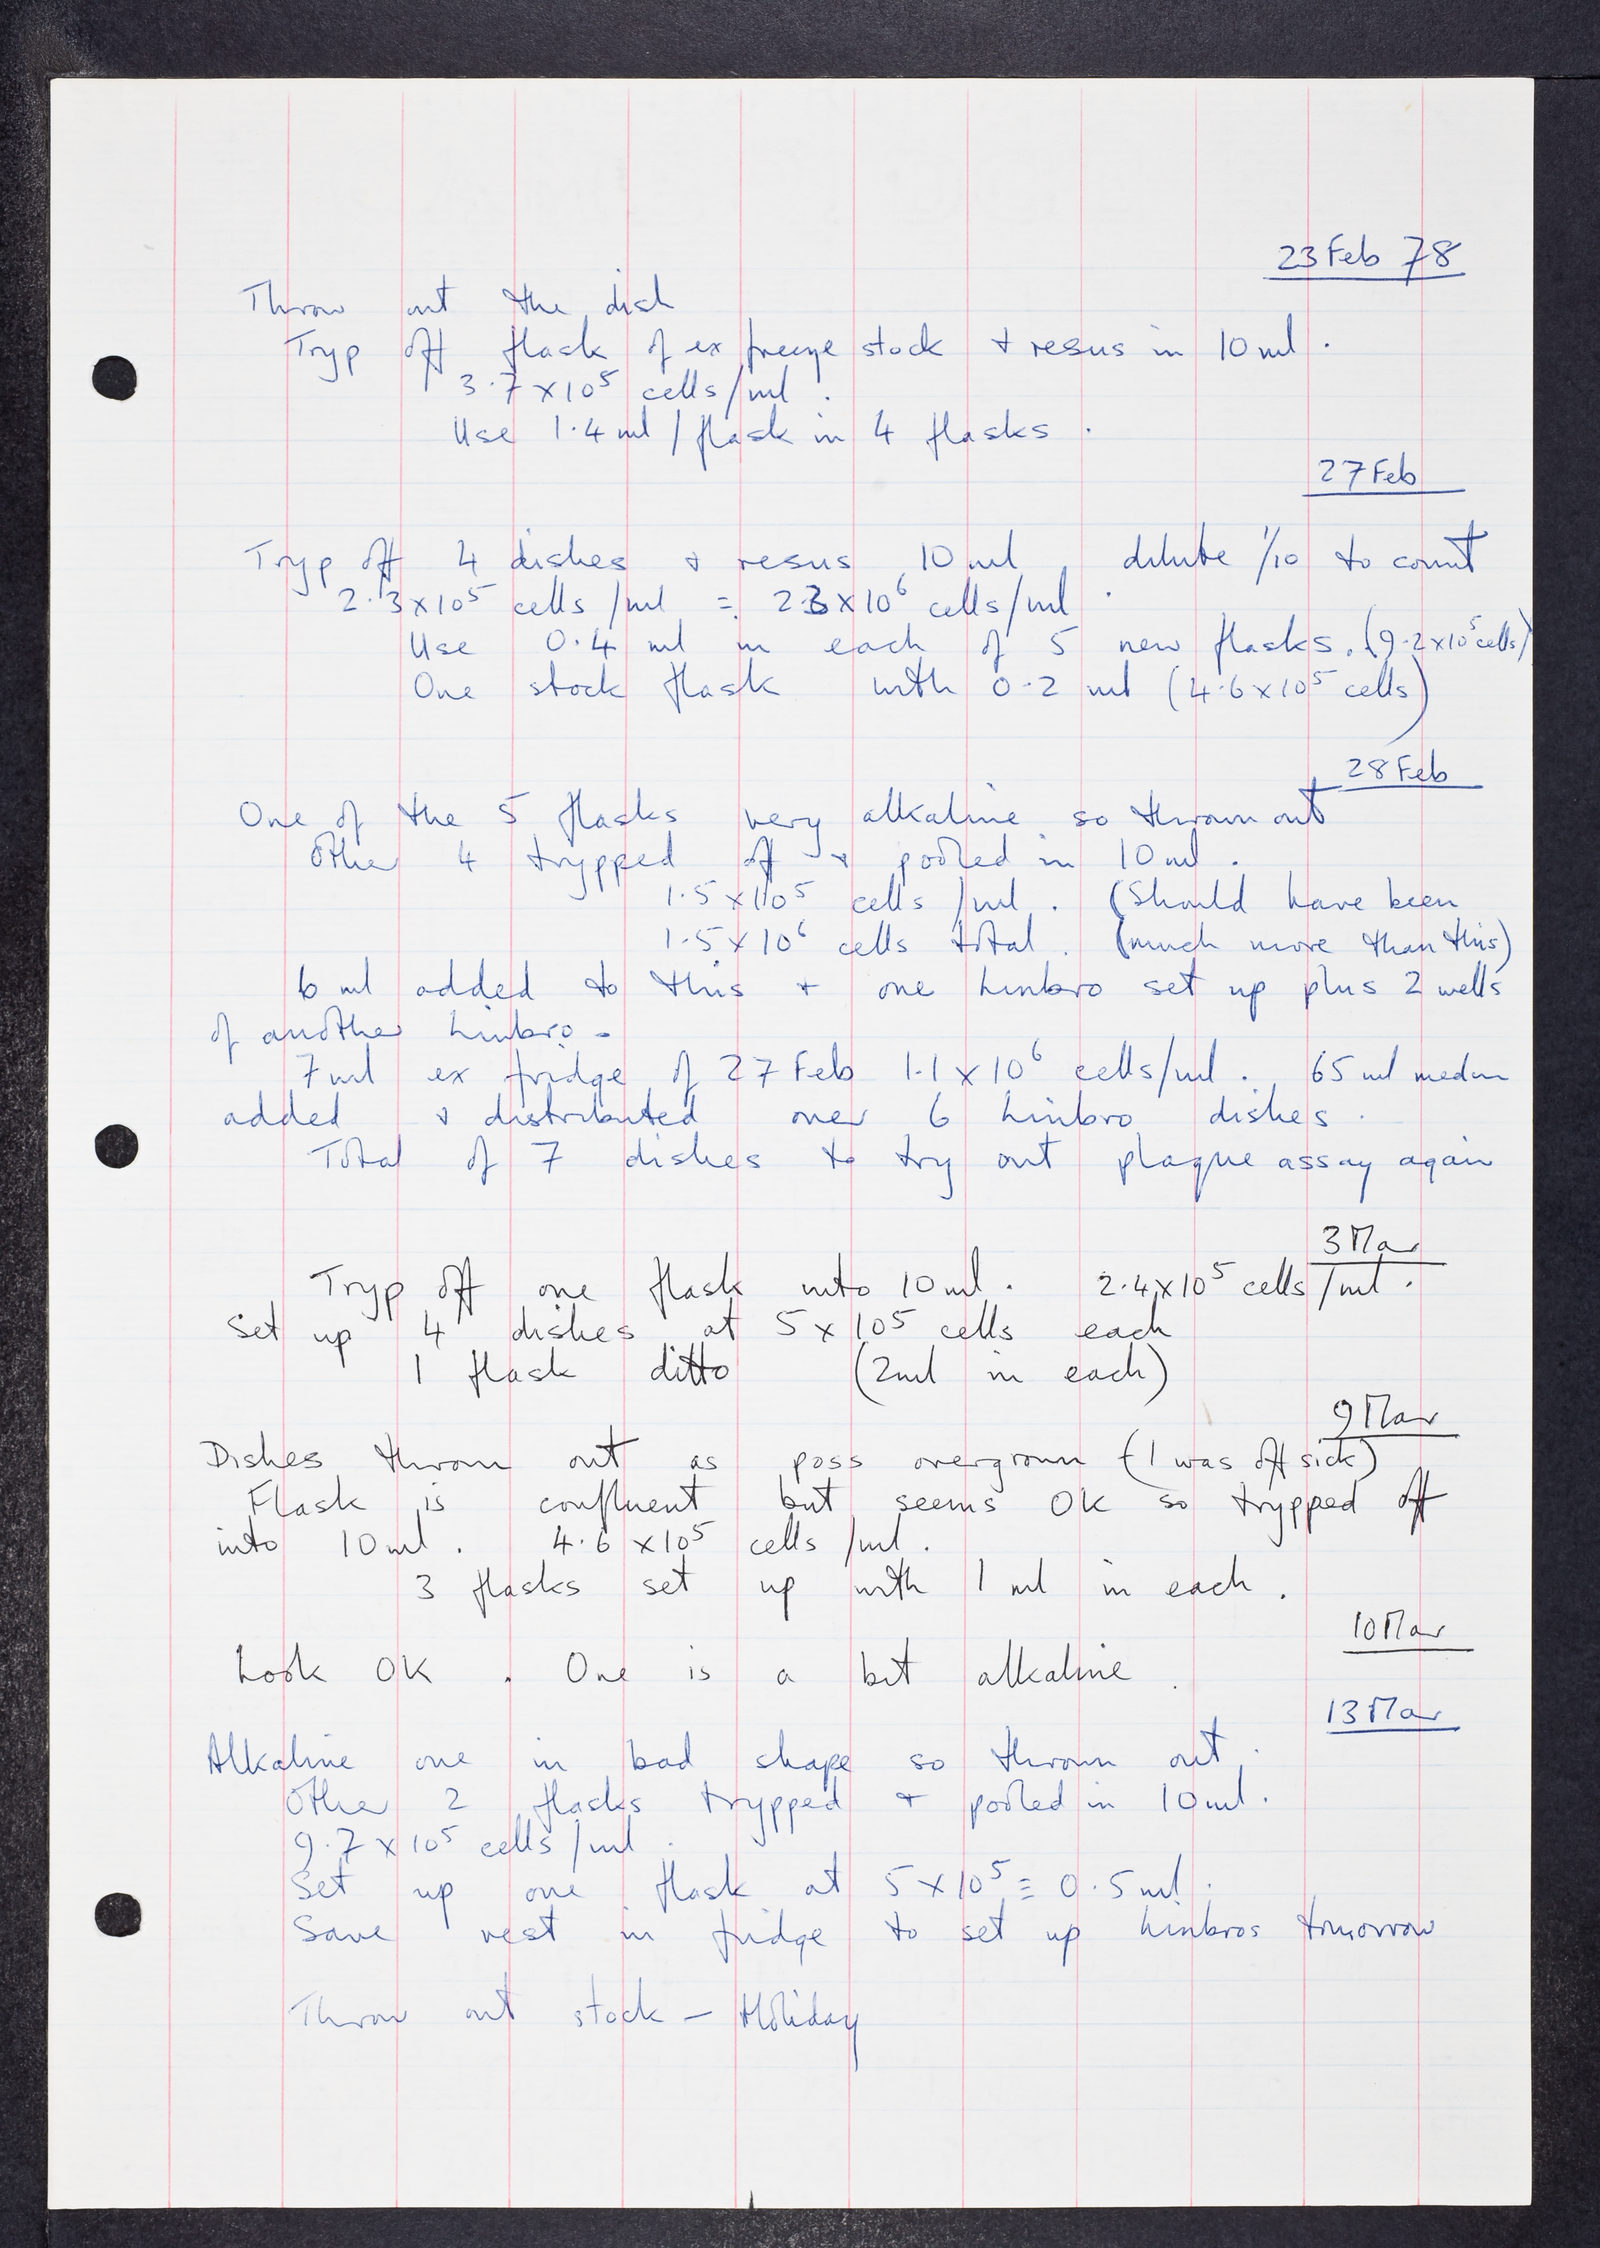 23 Feb 78
Throw out the dish
Tryp off flask of ex freeze stock + resus in 10 ml.
3.7 x 10⁵ cells/ml.
Use 1.4 ml / flask in 4 flasks.
27 Feb
Tryp off 4 dishes + resus 10 ml, dilute 1/10 to count
2.3 x 10⁵ cells/ml = 2.3 x 10⁶ cells/ml.
Use 0.4 ml in each of 5 new flasks. (9.2 x 10⁵ cells)
One stock flask with 0.2 ml (4.6 x 10⁵ cells)
28 Feb
One of the 5 flasks very alkaline so thrown out
Other 4 trypped off + pooled in 10 ml.
1.5 x 10⁵ cells/ml. (Should have been
1.5 x 10⁶ cells total. (much more than this)
6 ml added to this + one Linbro set up plus 2 wells
of another Linbro.
7 ml ex fridge of 27 Feb 1.1 x 10⁶ cells/ml. 65 ml medm
added + distributed over 6 Linbro dishes.
Total of 7 dishes to try out plaque assay again
3 Mar
Tryp off one flask into 10 ml. 2.4 x 10⁵ cells/ml.
Set up 4 dishes at 5 x 10⁵ cells each
1 flask ditto (2ml in each)
9 Mar
Dishes thrown out as poss overgrown (I was off sick)
Flask is confluent but seems OK so trypped off
into 10 ml. 4.6 x 10⁵ cells/ml.
3 flasks set up with 1 ml in each.
10 Mar
Look OK. One is a bit alkaline.
13 Mar
Alkaline one in bad shape so thrown out.
Other 2 flasks trypped + pooled in 10 ml.
9.7 x 10⁵ cells/ml.
Set up one flask at 5 x 10⁵ ≡ 0.5 ml.
Save rest in fridge to set up Linbros tomorrow
Throw out stock – Holiday